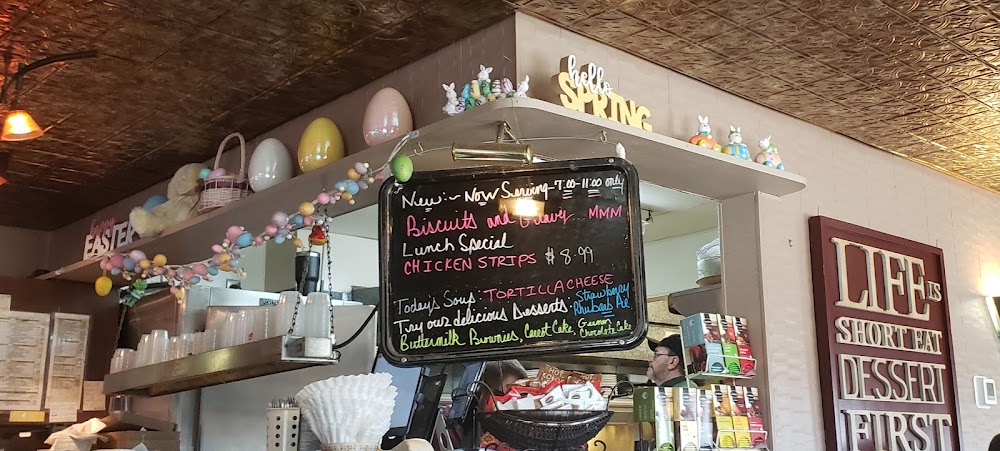 hello
SPRING
EASTER
New:- Now Serving-7:00-11:00 only
Biscuits and Gravy MMM
Lunch Special
CHICKEN STRIPS $8.99
Today's Soup: TORTILLA CHEESE
Try our delicious Desserts: Strawberry
Rhubarb Pie
Buttermilk Brownies, Carrot Cake, German
Chocolate Cake
LIFE IS
SHORT EAT
DESSERT
FIRST